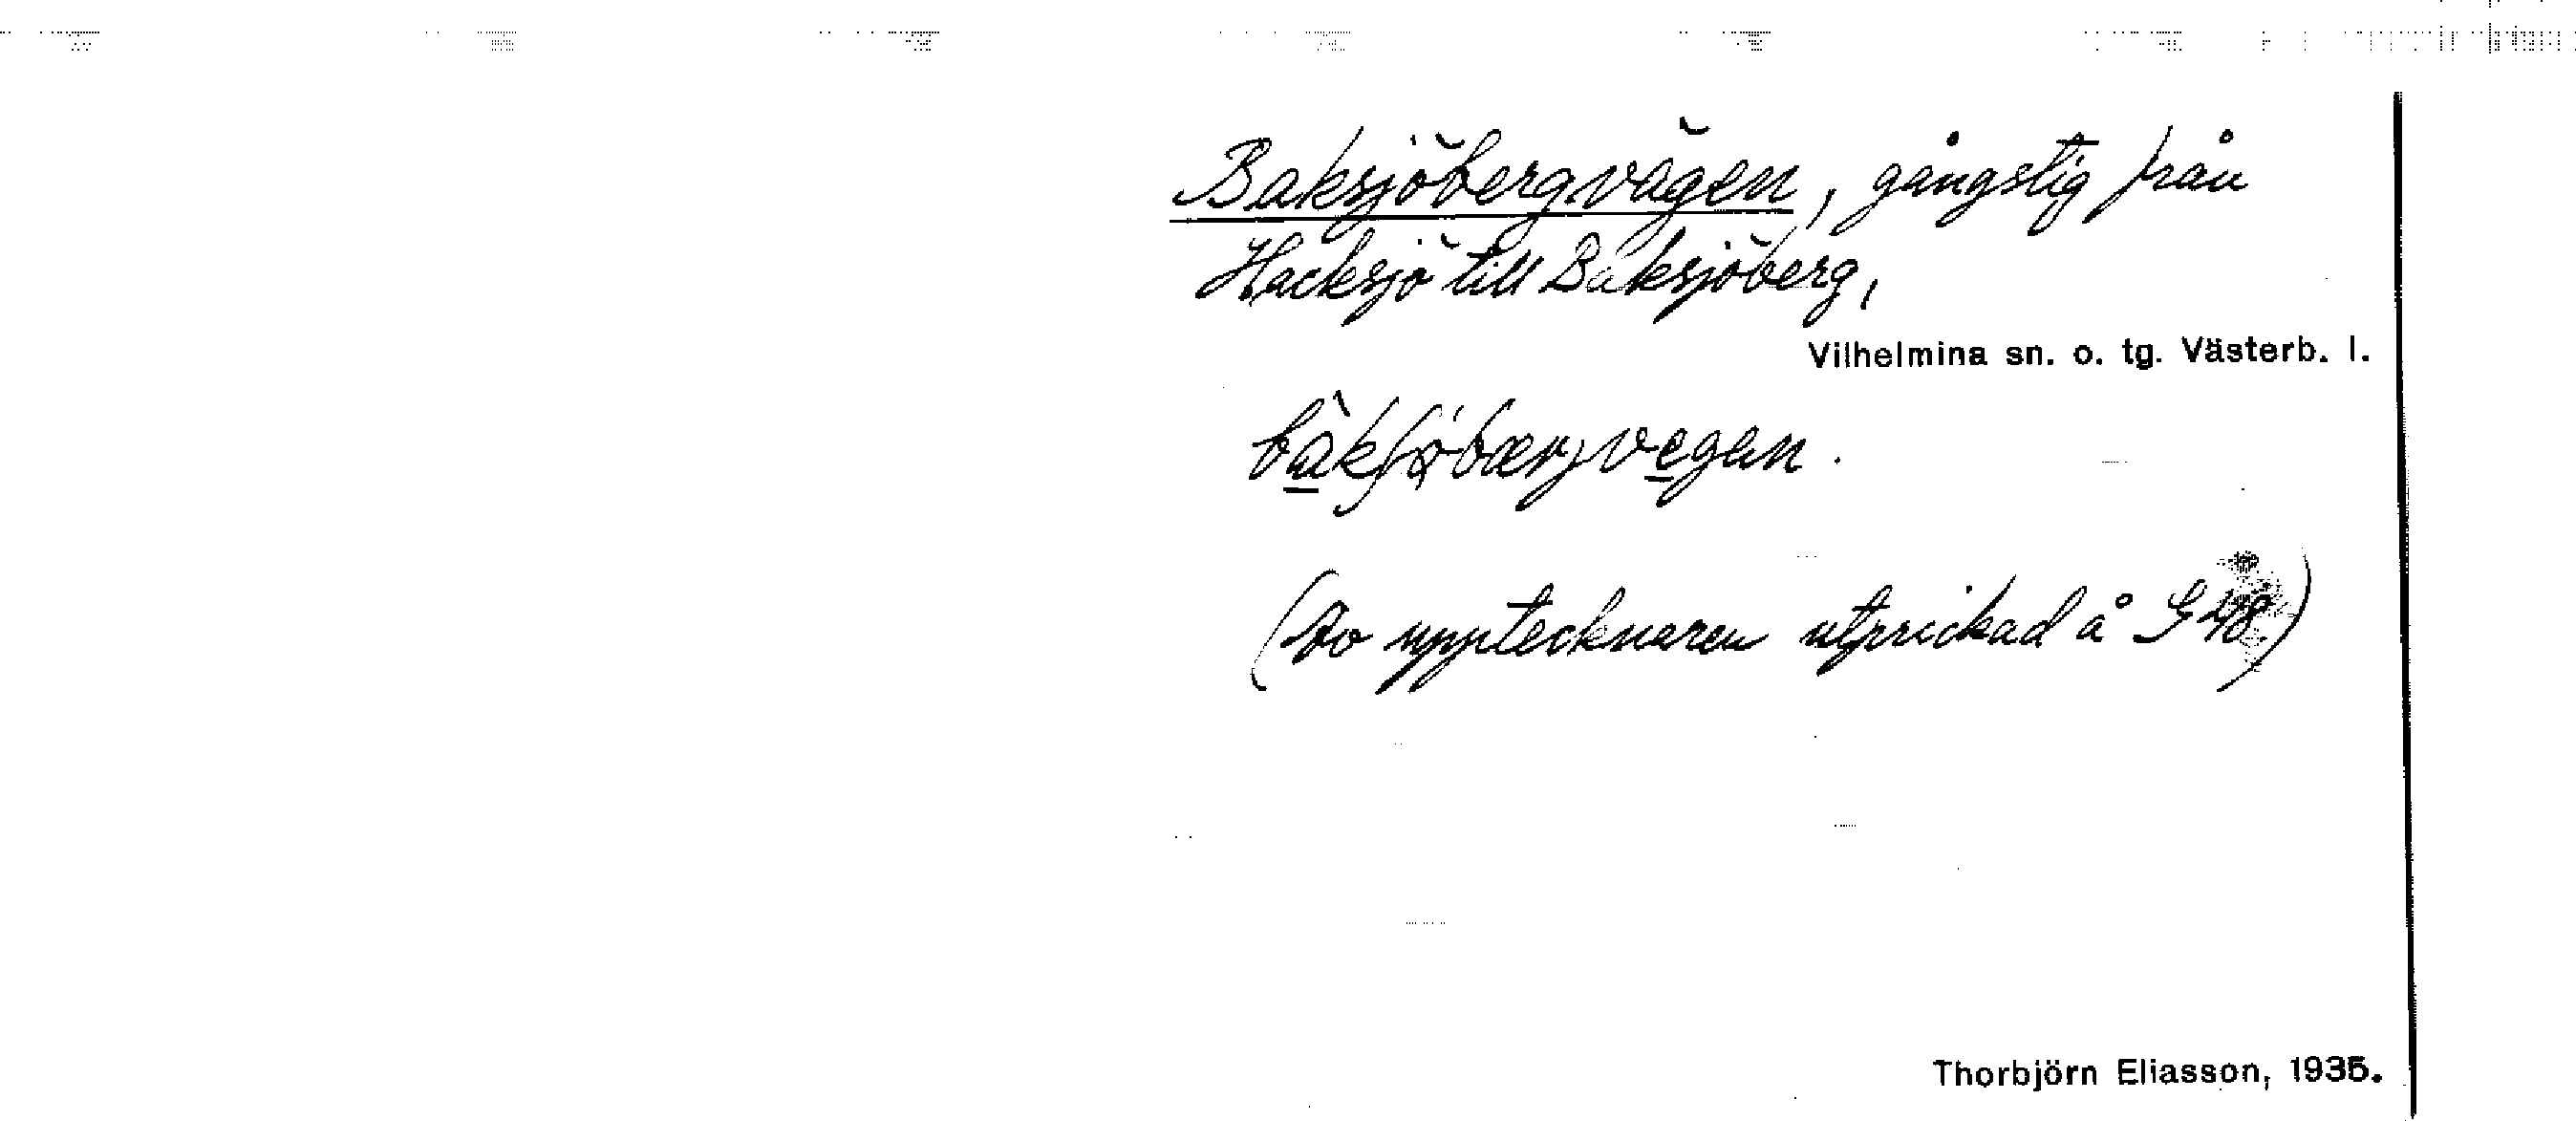 Baksjöbergvägen, gångstig från
Hacksjö till Baksjöberg,
Vilhelmina sn. o. tg. Västerb. l.
(Av upptecknaren utprickad å G 48.)
Thorbjörn Eliasson, 1935.